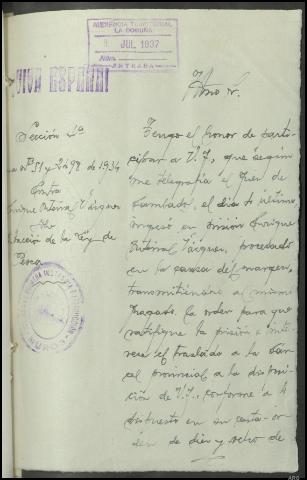 AUDIENCIA TERRITORIAL
LA CORUÑA
JUL. 1937
ENTRADA
¡VIVA ESPAÑA!
Iltmo Sr.
Sección 2ª
Nº 51 y 2498 de 1934
Contra
Enrique Vázquez
Infracción de la Ley de
Pesca
Tengo el honor de parti-
cipar a V.I., que según
me telegrafía el Juez de
Cambado, el día 6 último,
ingresó en prisión Enrique
Vázquez, procesado
en la causa del margen,
transmitiéndose al mismo
Juzgado la orden para que
ratifique la prisión e inte-
rese el traslado a la Cár-
cel provincial a la disposi-
ción de V.I., conforme a lo
dispuesto en su carta-or-
den de diez y ocho de